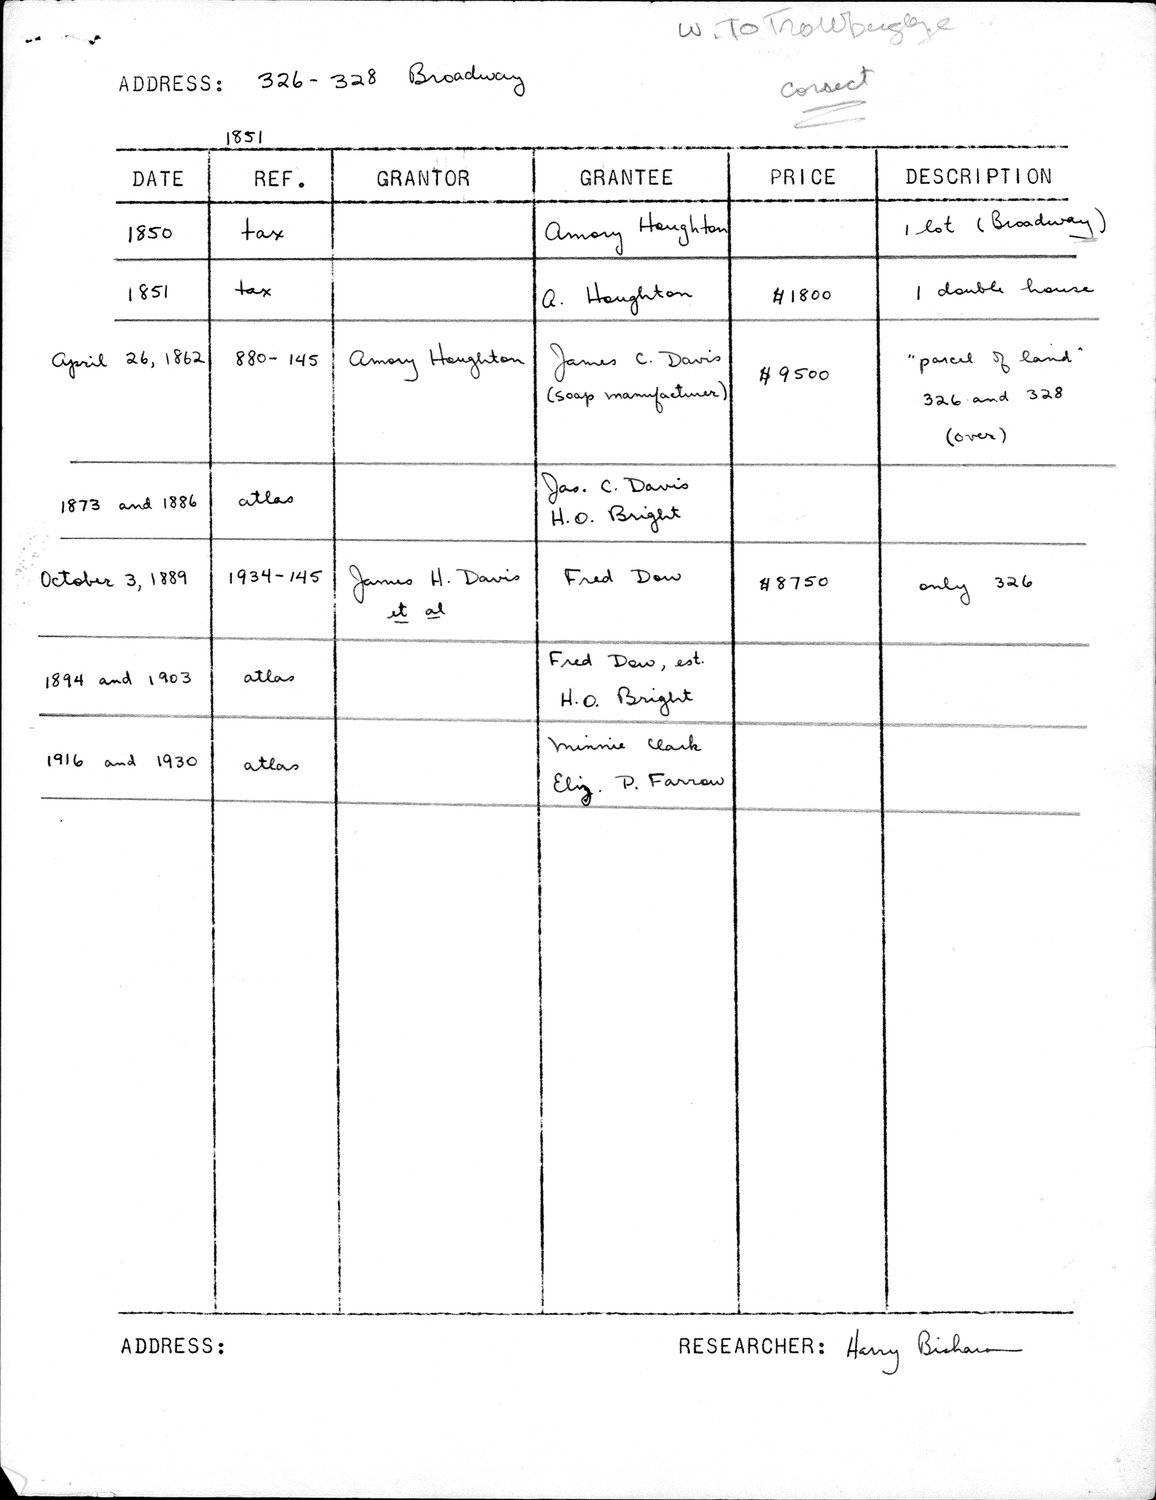 W. To Trowbridge
ADDRESS: 326-328 Broadway
Corsect
1851
DATE REF. GRANTOR GRANTEE PRICE DESCRIPTION
1850 tax Amory Houghton 1 lot (Broadway)
1851 tax A. Houghton $1800 1 double house
April 26, 1862 880-145 Amory Houghton James C. Davis $9500 "parcel of land"
(soap manufacturer) 326 and 328
(over)
1873 and 1886 atlas Jas. C. Davis
H.O. Bright
October 3, 1889 1934-145 James H. Davis Fred Dow $8750 only 326
et al
1894 and 1903 atlas Fred Dow, est.
H.O. Bright
1916 and 1930 atlas Minnie Clark
Eliz. P. Farrow
ADDRESS: RESEARCHER: Harry